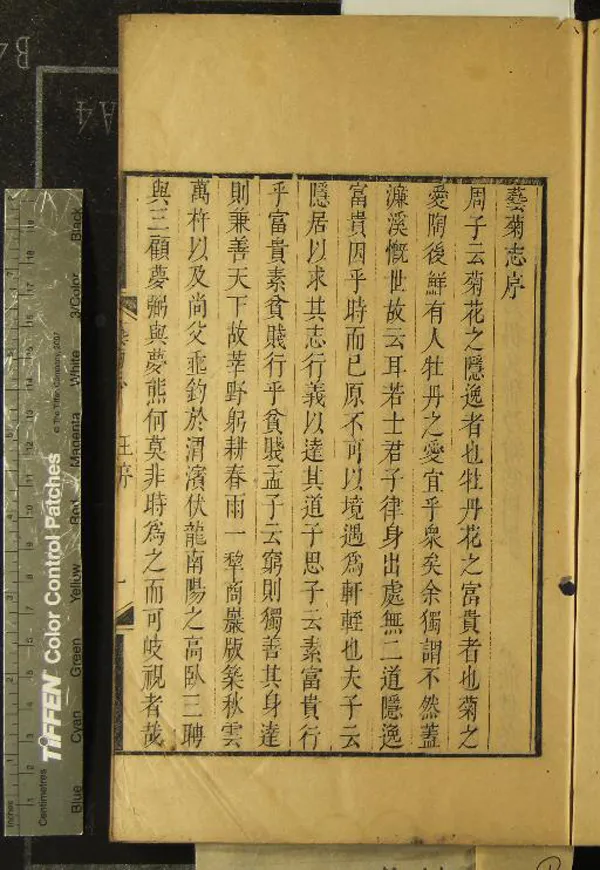 藝菊志序
周子云菊花之隱逸者也牡丹花之富貴者也菊之
愛陶後鮮有人牡丹之愛宜乎衆矣余獨謂不然蓋
濂溪慨世故云耳若士君子律身出處無二道隱逸
富貴因乎時而已原不可以境遇爲軒輊也夫子云
隱居以求其志行義以達其道子思子云素富貴行
乎富貴素貧賤行乎貧賤孟子云窮則獨善其身達
則兼善天下故莘野躬耕春雨一犂商巖版築秋雲
萬杵以及尚父垂釣於渭濱伏龍南陽之高臥三聘
與三顧夢弼與夢熊何莫非時爲之而可岐視者哉
王序
一
TIFFEN Color Control Patches
© The Tiffen Company, 2007
Blue
Cyan
Green
Yellow
Red
Magenta
White
3/Color
Black
Centimetres
Inches
A4